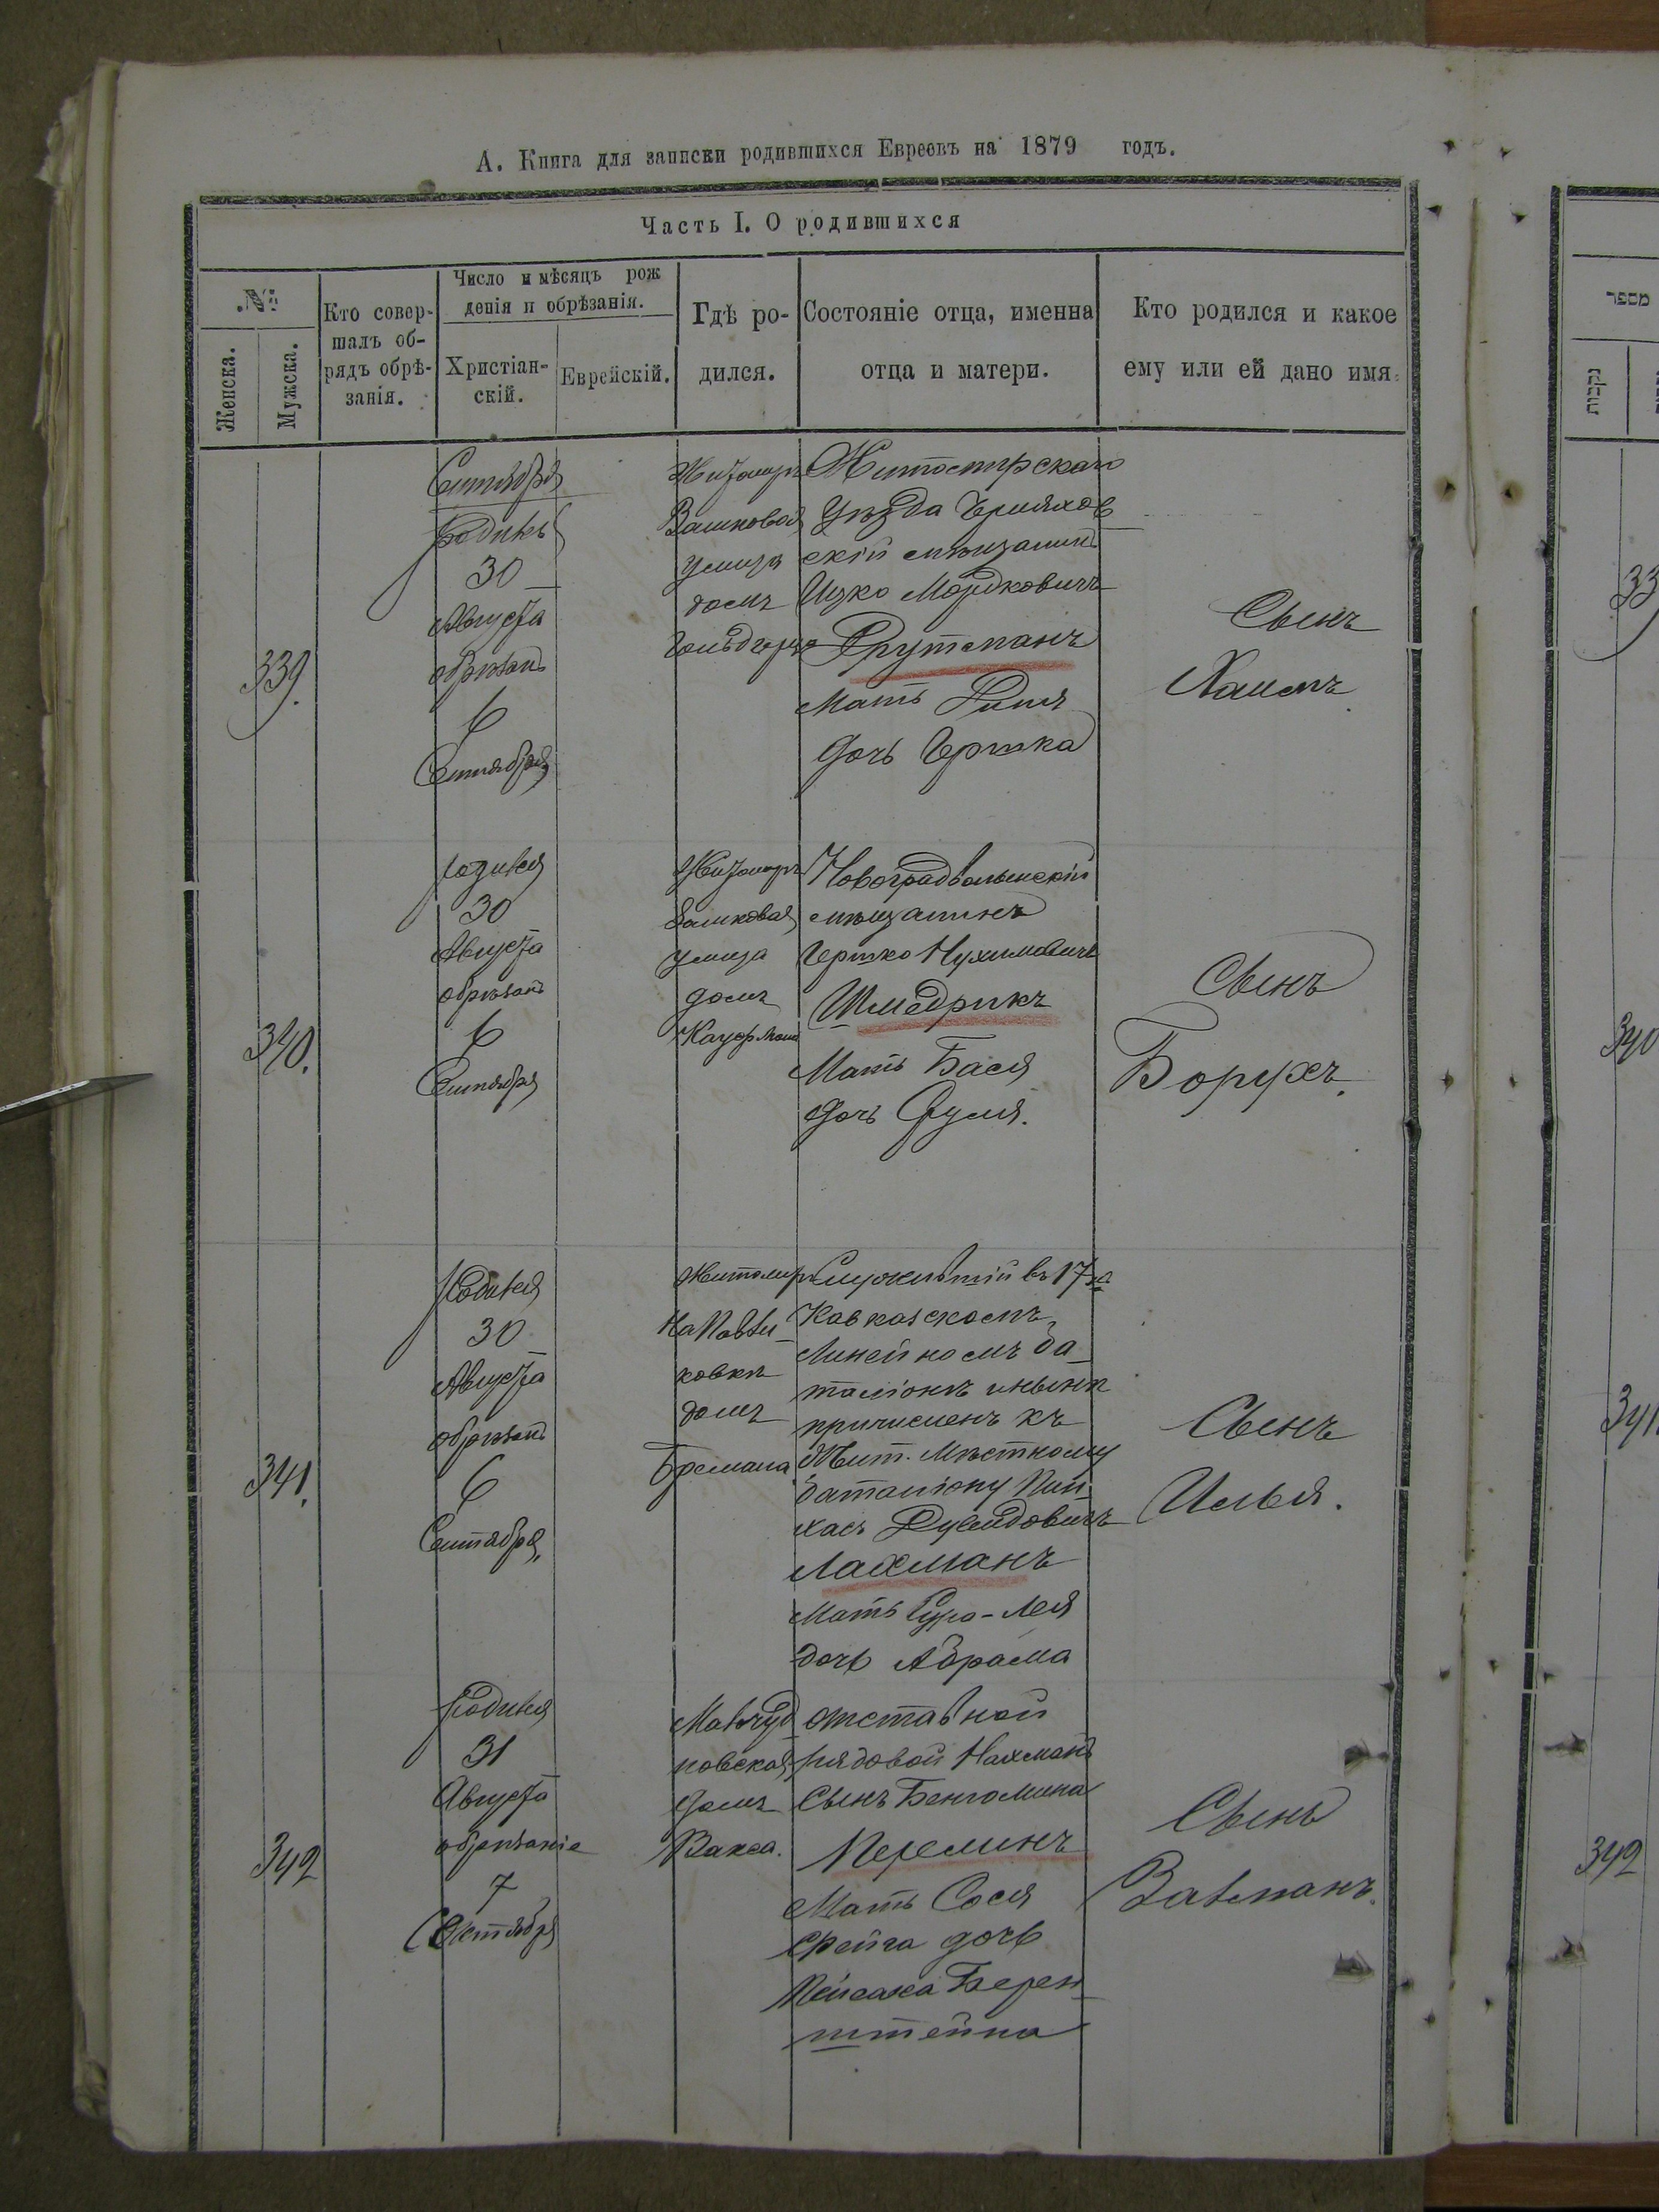 А. Книга для записки родившихся Евреевъ на 1879 годъ.
Часть I. О родившихся
№
Женска.
Мужска.
Кто совер-
шалъ об-
рядъ обрѣ-
занія.
Число и мѣсяцъ рож
денія и обрѣзанія.
Христіан-
скій.
Еврейскій.
Гдѣ ро-
дился.
Состояніе отца, именна
отца и матери.
Кто родился и какое
ему или ей дано имя.
מספר
נקבות
339.
Сентября
Родился
30
Августа
обрѣзанъ
6
Сентября
Житомиръ
улица
домъ
Житомирскаго
Уѣзда Черняхов
скій мѣщанинъ
Ицко Мордковичъ
Фрутманъ
Мать
дочь Гершка
Сынъ
Хаимъ
33
340.
родился
30
Августа
обрѣзанъ
6
Сентября
Житомиръ
улица
домъ
Новоградволынскій
мѣщанинъ
Гершко Нухимовичъ
Шмедрикъ
Мать Бася
дочь Сруля.
Сынъ
Борухъ.
340
341.
Родился
30
Августа
обрѣзанъ
6
Сентября,
Житомиръ
На Павли-
ковкѣ
домъ
Бремана
Служившій въ 17м
Кавказскомъ
Линейномъ ба-
таліонѣ и нынѣ
причисленъ къ
Жит. Мѣстному
баталіону Пин-
хасъ Дувидовичъ
Лахманъ
Мать Сура-Лея
дочь Абрама
Сынъ
Илья.
341.
342
Родился
31
Августа
обрѣзаніе
7
Сентября
домъ
Вакса.
отставной
рядовой Нахманъ
сынъ Бенюмина
Перелинъ
Мать Сося
Фейга дочь
Пейсаха Берен
штейна
Сынъ
Залманъ.
342